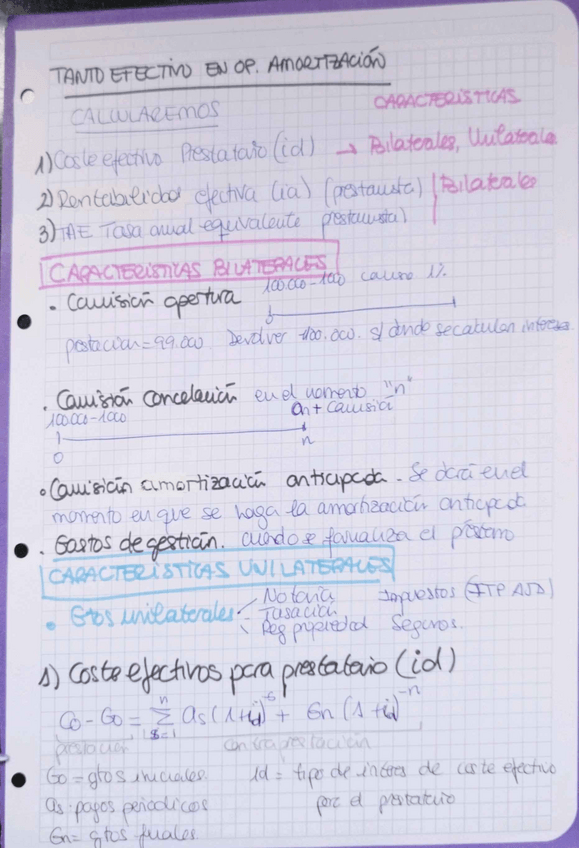 TANTO EFECTIVO EN OP. AMORTIZACIÓN
CALCULAREMOS
CARACTERÍSTICAS
1) Coste efectivo Prestatario (id) → Bilaterales, Unilaterale
2) Rentabilidad efectiva (ia) (prestamista) | Bilaterales
3) TAE Tasa anual equivalente prestamista)
CARACTERÍSTICAS BILATERALES
100.000-1000 comiso 1%
• Comisión apertura
0
prestación = 99.000 Devolver 100.000. s/ donde se calculan intereses
• Comisión cancelación en el momento "n"
100.000-1000 an + comisión
0 n
• Comisión amortización anticipada. Se dará en el
momento en que se haga la amortización anticipad
• Gastos de gestión. cuando se formaliza el préstamo
CARACTERÍSTICAS UNILATERALES
• Gtos unilaterales - Notaría Impuestos (ITP AJD)
- Tasación
- Reg propiedad Seguros.
1) Coste efectivos para prestatario (id)
Co - Go = Σ as (1+id)^-s + Gn (1+id)^-n
n
s=1
prestación contraprestación
Go = gtos iniciales id = tipo de interes de coste efectivo
as = pagos periodicos por el prestatario
Gn = gtos finales